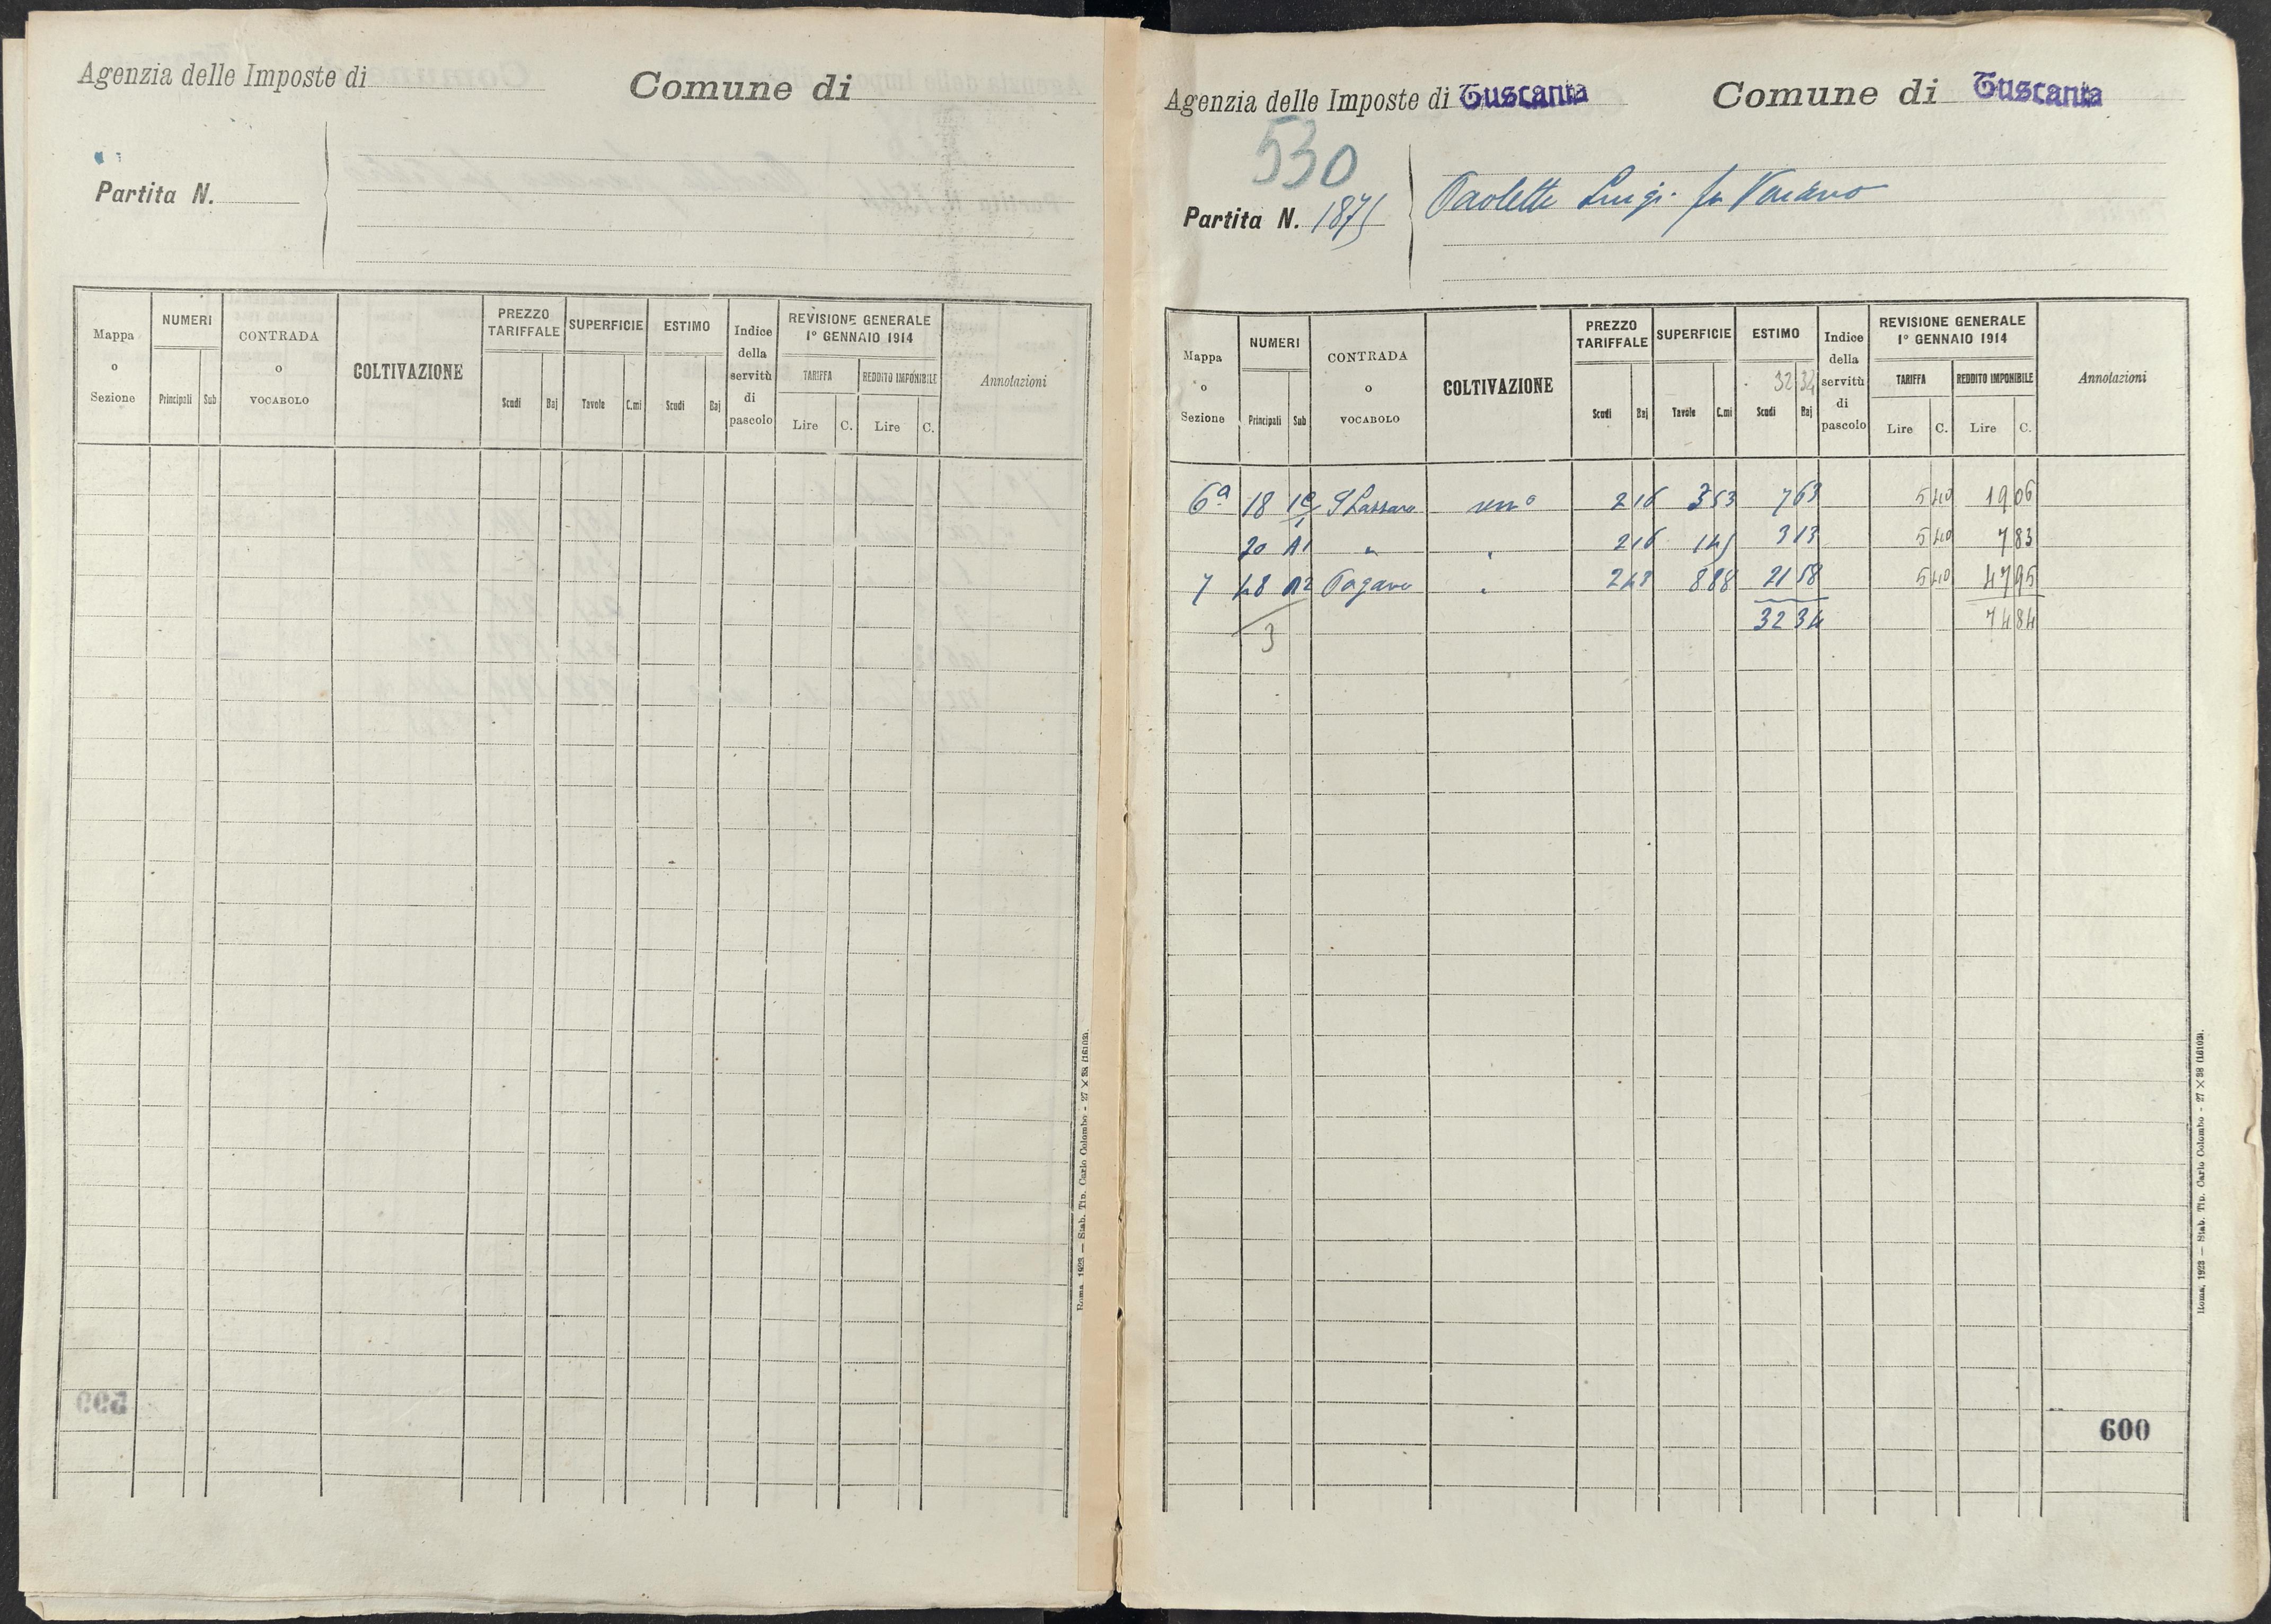 Agenzia delle Imposte di
Comune di
Partita N.
Mappa o Sezione
NUMERI
Principali
Sub
CONTRADA o VOCABOLO
COLTIVAZIONE
PREZZO TARIFFALE
Scudi
Baj
SUPERFICIE
Tavole
C.mi
ESTIMO
Scudi
Baj
Indice della servitù di pascolo
REVISIONE GENERALE
1º GENNAIO 1914
TARIFFA
Lire
C.
REDDITO IMPONIBILE
Lire
C.
Annotazioni
Roma, 1923 — Stab. Tip. Carlo Colombo - 27 × 38 (16103).
Agenzia delle Imposte di Tuscania
Comune di Tuscania
530
Partita N. 1875
Paoletti Luigi fu
Mappa o Sezione
NUMERI
Principali
Sub
CONTRADA o VOCABOLO
COLTIVAZIONE
PREZZO TARIFFALE
Scudi
Baj
SUPERFICIE
Tavole
C.mi
ESTIMO
32 34
Scudi
Baj
Indice della servitù di pascolo
REVISIONE GENERALE
1º GENNAIO 1914
TARIFFA
Lire
C.
REDDITO IMPONIBILE
Lire
C.
Annotazioni
6ª 18 S Lazzaro semº 2 16 3 53 7 63 5 40 19 06
20 A1 " " 2 16 1 45 3 13 5 40 7 83
7 48 A2 " 2 43 8 88 21 58 5 40 47 95
3 32 34 74 84
600
Roma, 1923 — Stab. Tip. Carlo Colombo - 27 × 38 (16103).